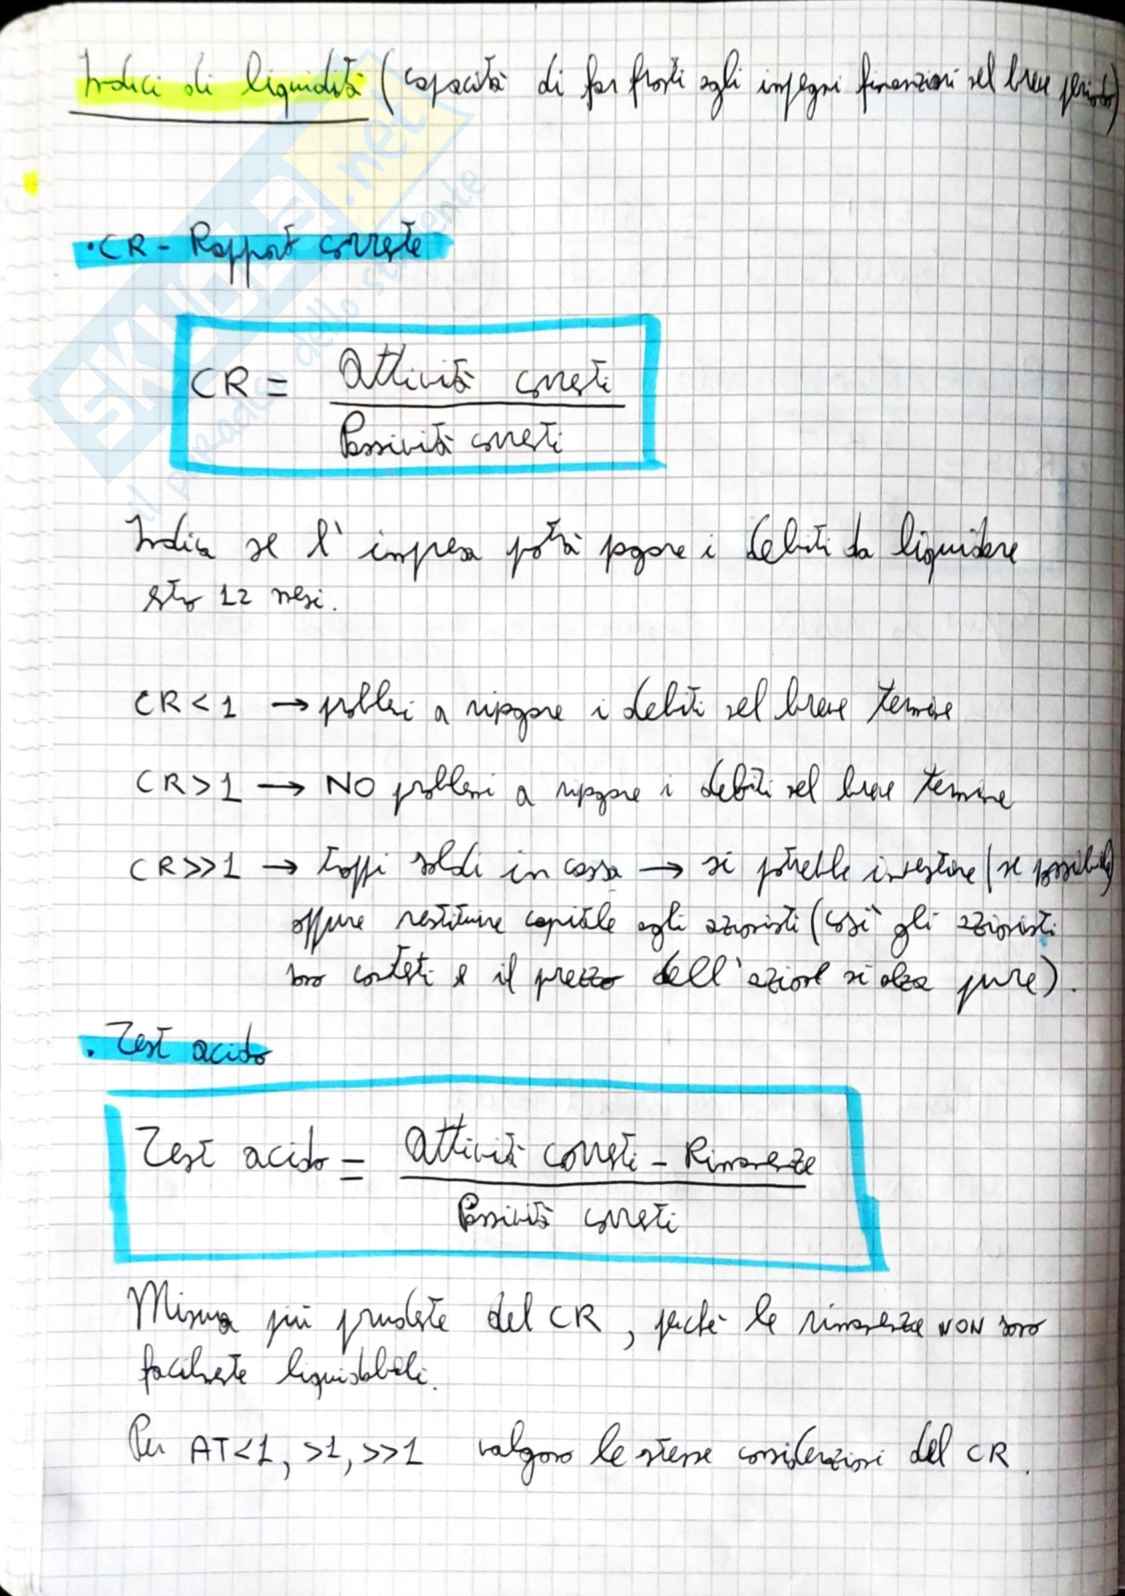 Indici di liquidità (capacità di far fronte agli impegni finanziari nel breve periodo)
SKUOLA.net
il paradiso dello studente
• CR - Rapporto corrente
CR = Attività correnti
Passività correnti
Indica se l'impresa potrà pagare i debiti da liquidare
entro 12 mesi.
CR < 1 → problemi a ripagare i debiti nel breve termine
CR > 1 → NO problemi a ripagare i debiti nel breve termine
CR >> 1 → troppi soldi in cassa → si potrebbe investire (se possibile)
oppure restituire capitale agli azionisti (così gli azionisti
sono contenti e il prezzo dell'azione si alza pure).
• Test acido
Test acido = Attività correnti - Rimanenze
Passività correnti
Misura più prudente del CR, perché le rimanenze NON sono
facilmente liquidabili.
Per AT<1, >1, >>1 valgono le stesse considerazioni del CR.